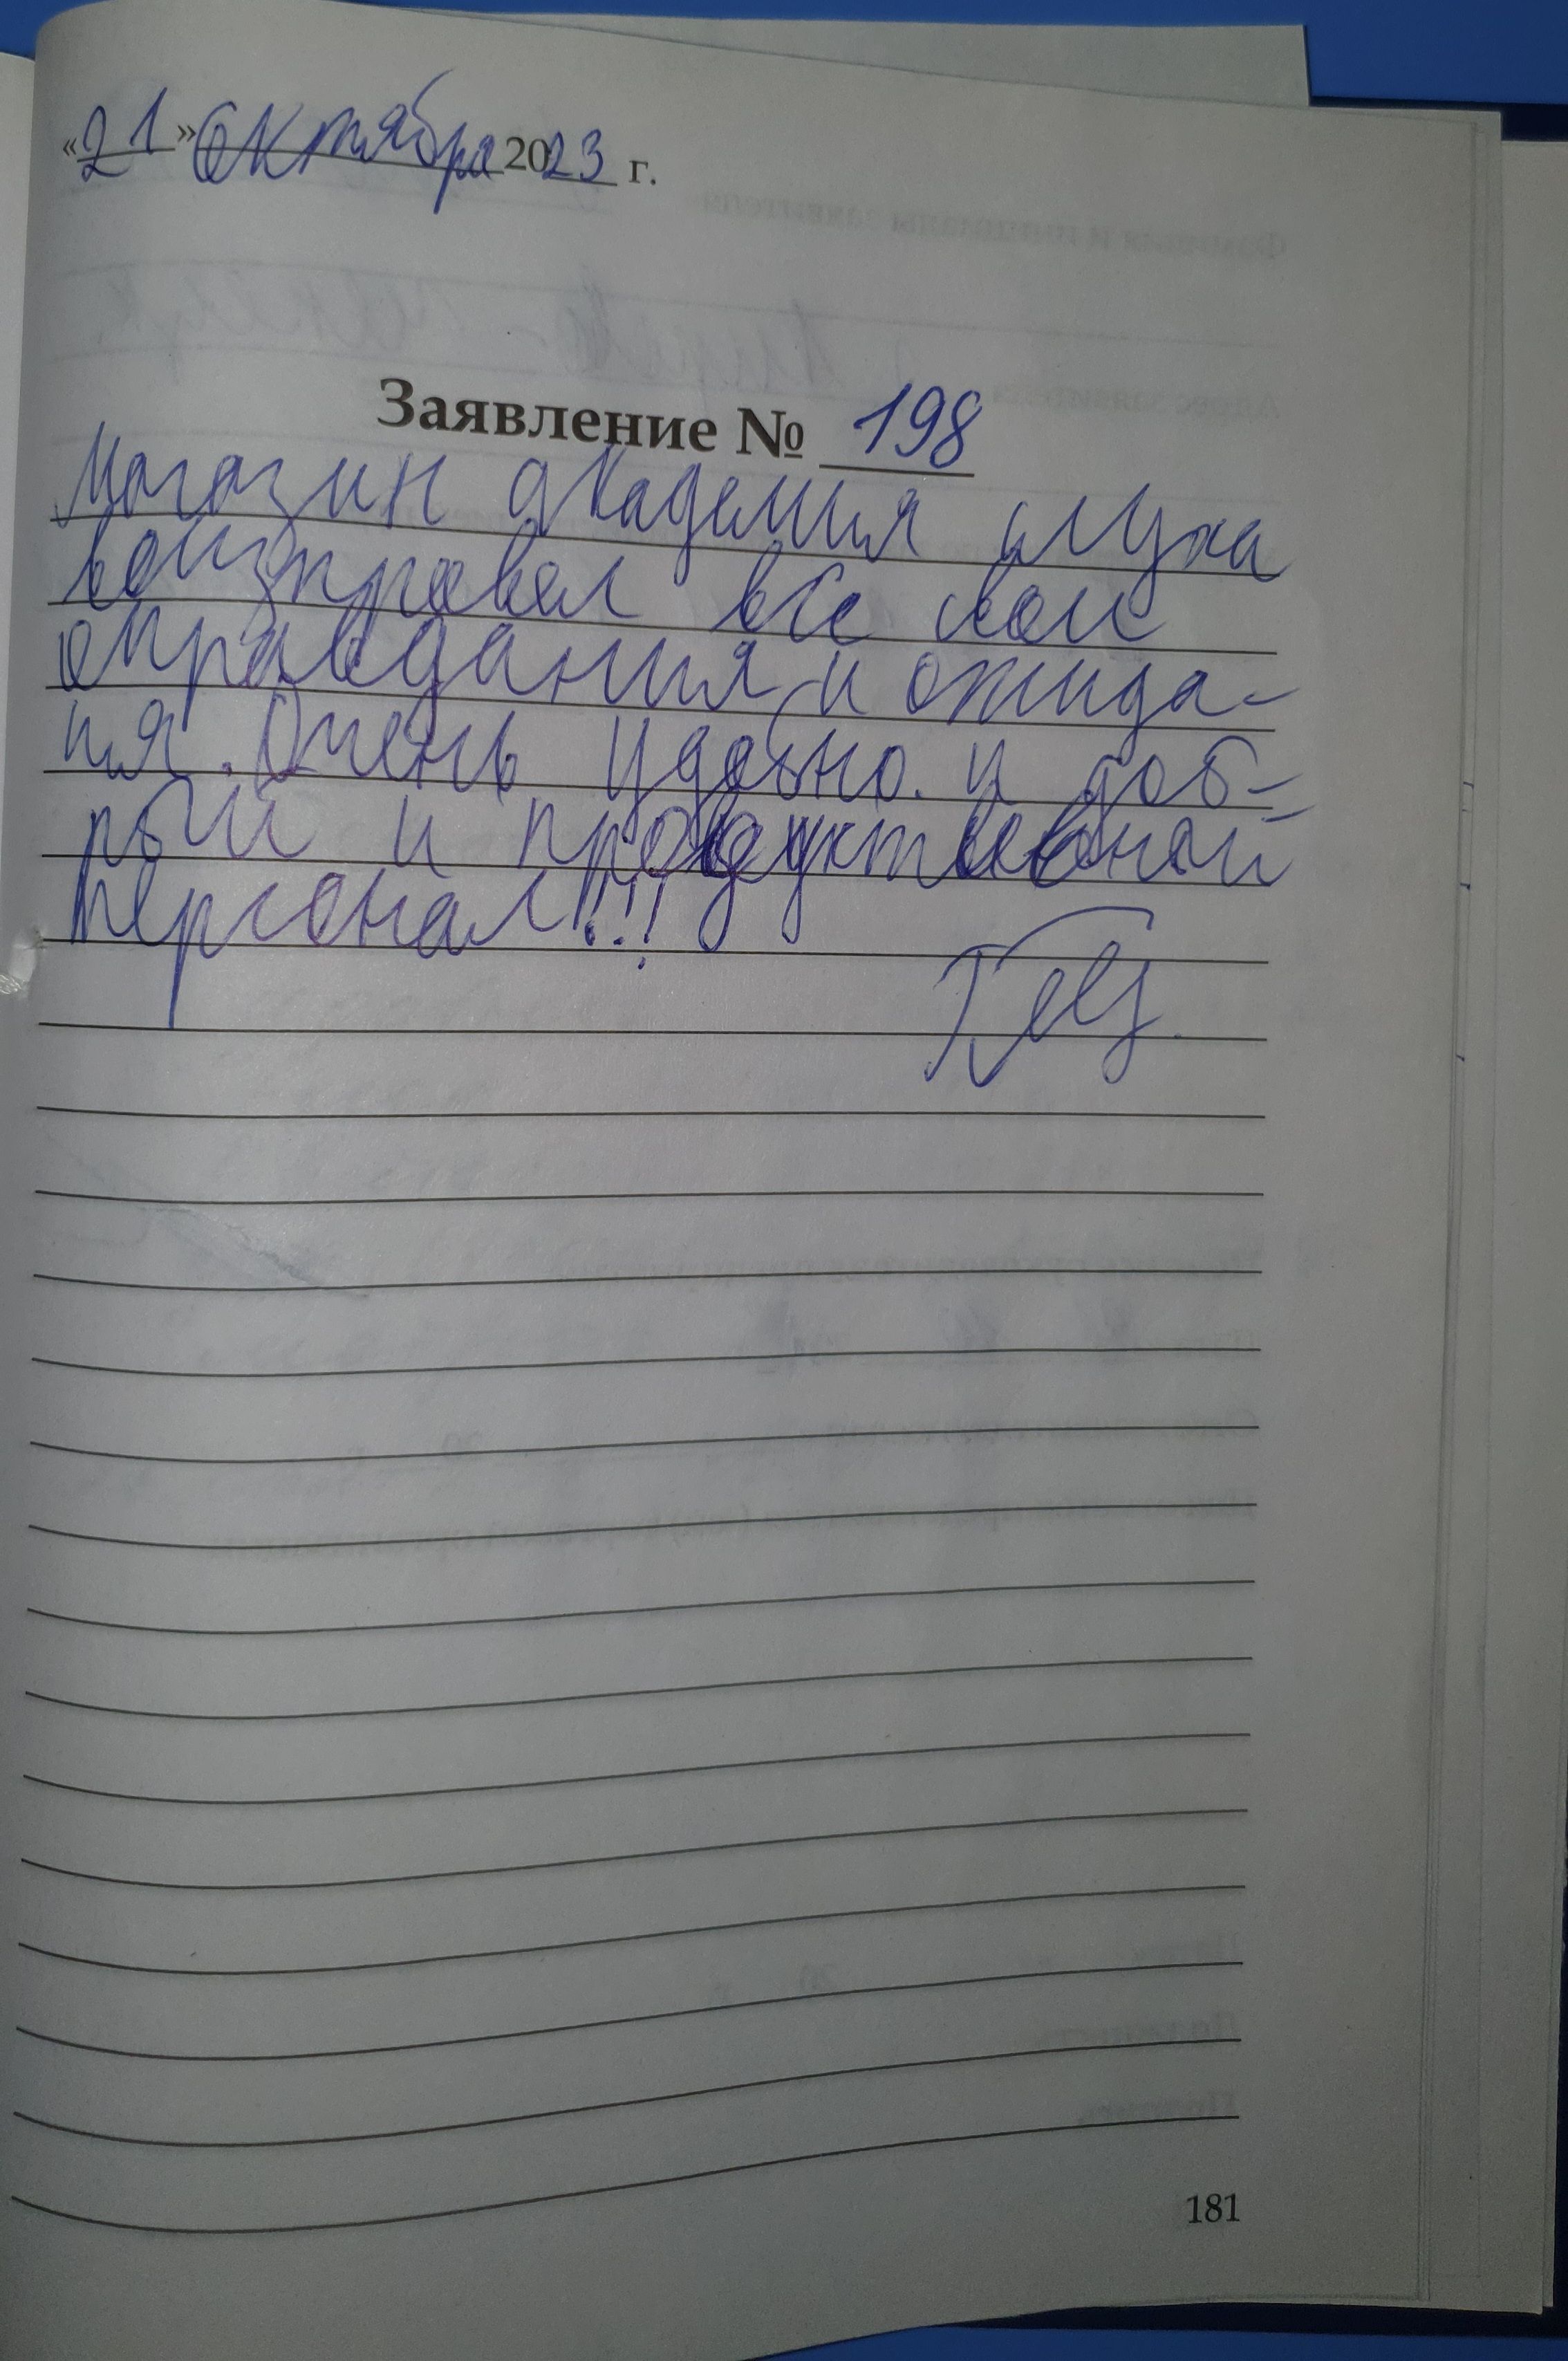 «21» Октября 2023 г.
Заявление № 198
Магазин академия слуха
воизправел все свои
оправдания и ожида-
ия. Очень удобно. и доб-
рый и продуктивной
персонал!!!
181